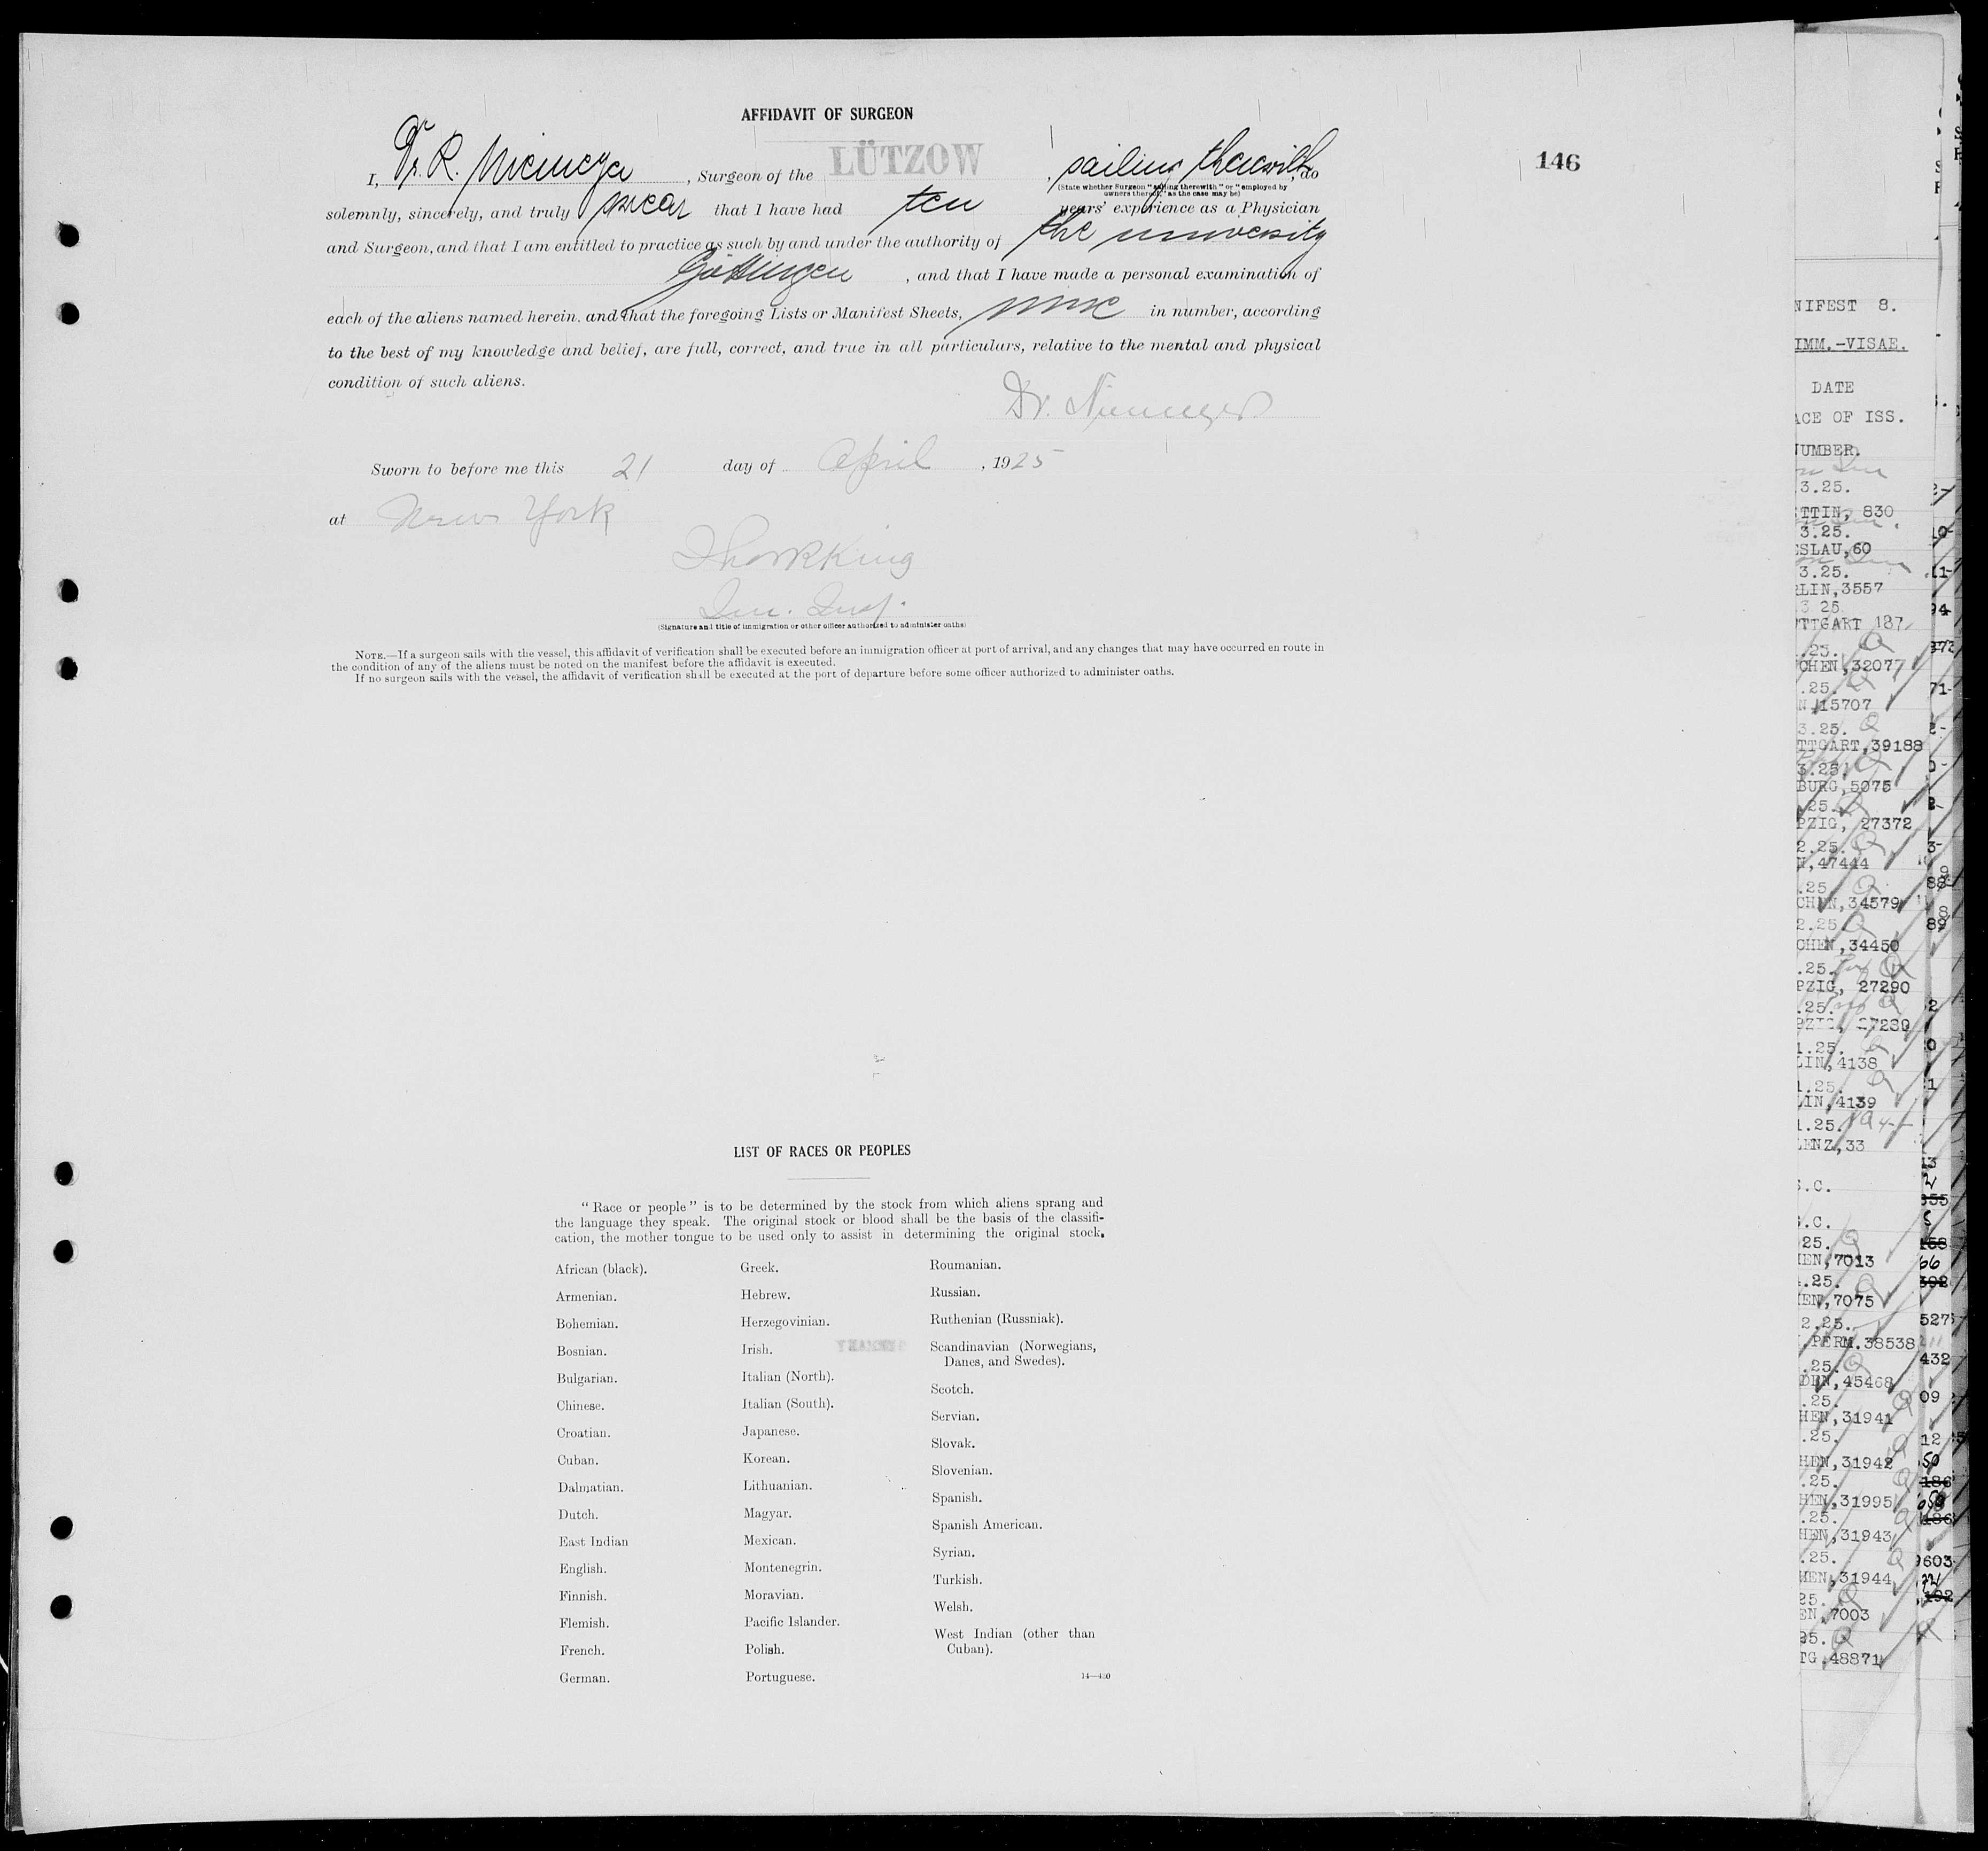 AFFIDAVIT OF SURGEON
146
I, Dr. R. Niemeyer, Surgeon of the LÜTZOW, sailing therewith, do
(State whether Surgeon "sailing therewith" or "employed by
owners thereof," as the case may be)
solemnly, sincerely, and truly swear that I have had ten years' experience as a Physician
and Surgeon, and that I am entitled to practice as such by and under the authority of the university
Göttingen, and that I have made a personal examination of
each of the aliens named herein, and that the foregoing Lists or Manifest Sheets, nine in number, according
to the best of my knowledge and belief, are full, correct, and true in all particulars, relative to the mental and physical
condition of such aliens.
Dr. Niemeyer
Sworn to before me this 21 day of April, 1925
at New York
King
Imm. Insp.
(Signature and title of immigration or other officer authorized to administer oaths)
NOTE.—If a surgeon sails with the vessel, this affidavit of verification shall be executed before an immigration officer at port of arrival, and any changes that may have occurred en route in
the condition of any of the aliens must be noted on the manifest before the affidavit is executed.
If no surgeon sails with the vessel, the affidavit of verification shall be executed at the port of departure before some officer authorized to administer oaths.
LIST OF RACES OR PEOPLES
"Race or people" is to be determined by the stock from which aliens sprang and
the language they speak. The original stock or blood shall be the basis of the classifi-
cation, the mother tongue to be used only to assist in determining the original stock.
African (black).
Armenian.
Bohemian.
Bosnian.
Bulgarian.
Chinese.
Croatian.
Cuban.
Dalmatian.
Dutch.
East Indian
English.
Finnish.
Flemish.
French.
German.
Greek.
Hebrew.
Herzegovinian.
Irish.
Italian (North).
Italian (South).
Japanese.
Korean.
Lithuanian.
Magyar.
Mexican.
Montenegrin.
Moravian.
Pacific Islander.
Polish.
Portuguese.
Roumanian.
Russian.
Ruthenian (Russniak).
Scandinavian (Norwegians,
Danes, and Swedes).
Scotch.
Servian.
Slovak.
Slovenian.
Spanish.
Spanish American.
Syrian.
Turkish.
Welsh.
West Indian (other than
Cuban).
14—430
NIFEST 8.
IMM.-VISAE.
DATE
ACE OF ISS.
NUMBER.
3.25.
TTIN, 830
3.25.
ESLAU,60
3.25.
RLIN,3557
.3 25
TTGART 187
.25.
CHEN,32077
.25.
N,15707
3.25.
TTGART,39188
3.25.
BURG,5075
.25.
PZIG, 27372
2.25.
N,47444
.25
CHEN,34579
2.25
CHEN,34450
.25.
PZIG, 27290
.25.
PZIG, 27289
1.25.
LIN,4138
1.25.
LIN,4139
1.25.
LENZ,33
S.C.
S.C.
25.
EN,7013
.25.
EN,7075
2.25.
.PERM.38538
.25.
DEN,45468
.25.
HEN,31941
.25.
HEN,31942
.25.
HEN,31995
.25.
HEN,31943
.25.
HEN,31944
25.
EN,7003
25.
TG.48871